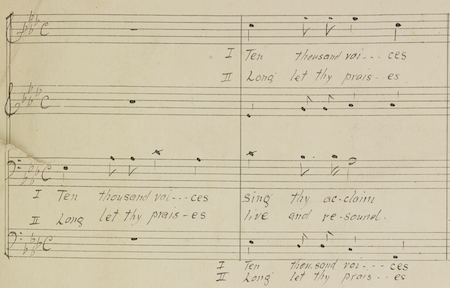 I Ten thousand voi---ces
II Long let thy prais-es
I Ten thousand voi---ces sing thy ac-claim
II Long let thy prais-es live and re-sound.
I Ten thou.sand voi---ces
II Long let thy prais--es